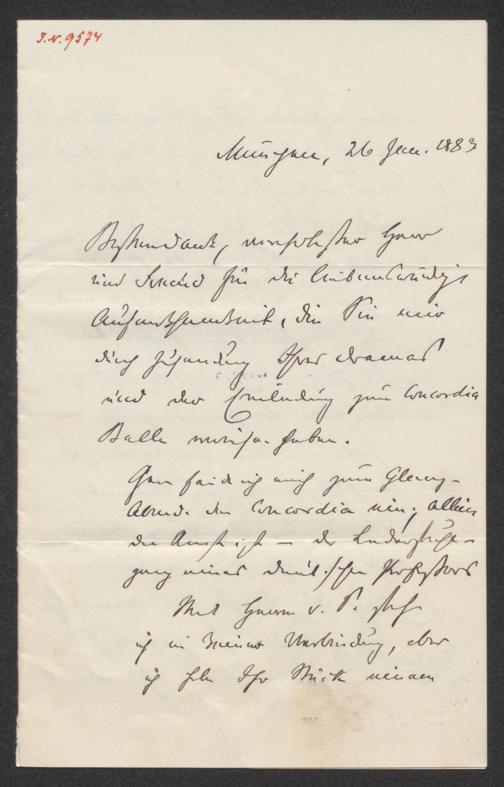 I.N. 9574
München, 26 Jan. 1883
Besten Dank, verehrtester Herr
und Freund für die liebenswürdige
Aufmerksamkeit, die Sie mir
durch Zusendung Ihres Dramas
und der Einladung zum Concordia
Balle erwiesen haben.
Gern fände ich mich zum
Abend der Concordia ein; allein
die
eines deutschen Professors
Mit Herrn v. P. steh
ich in keiner Verbindung, aber
ich habe Ihr Stück meinem